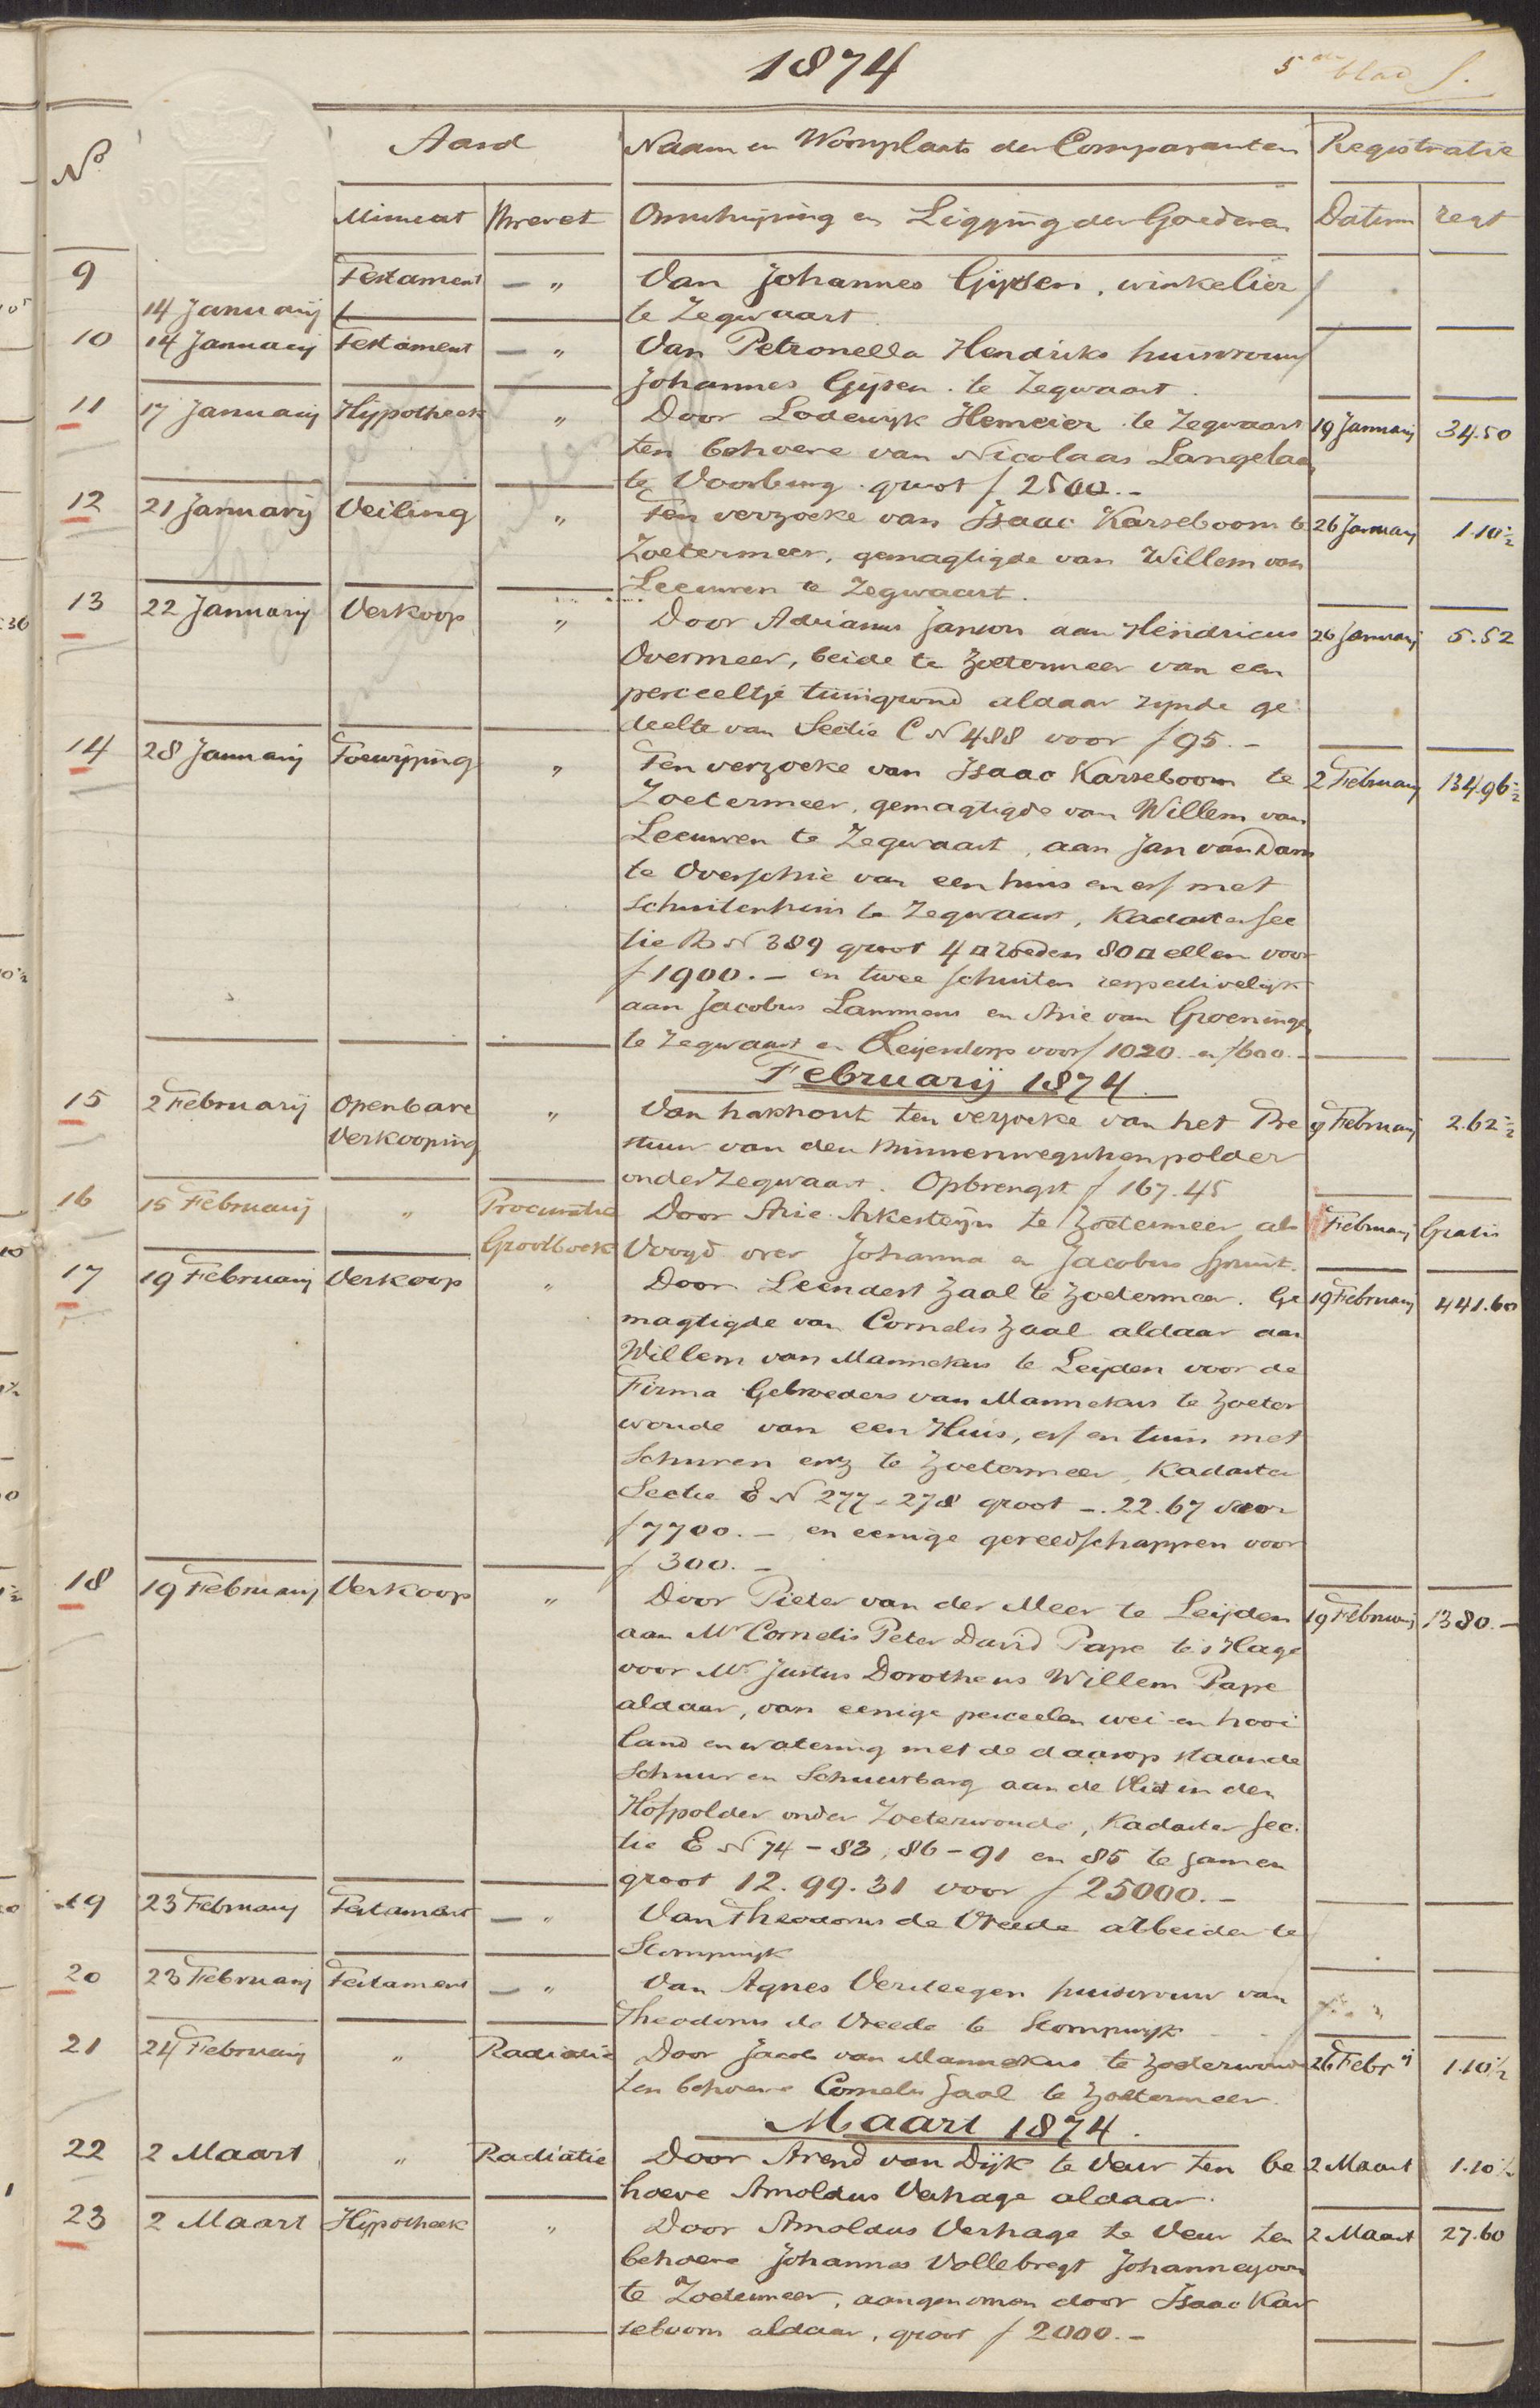 1874
5de blad
No Aard Naam en Woonplaats der Comparanten Registratie
Minuut Brevet Omschrijving en Ligging der Goederen Datum regt
9 14 Januarij Testament — „ Van Johannes Gijsen, winkelier
te Zegwaart
10 14 Januarij Testament — „ Van Petronella Hendriks huisvrouw
Johannes Gijsen te Zegwaart.
11 17 Januarij Hypotheek „ Door Lodewijk Hemeier te Zegwaart 19 Januarij 34.50
ten behoeve van Nicolaas Langelaan
te Voorburg groot f 2500.-
12 21 Januarij Veiling „ Ten verzoeke van Isaac Karseboom te 26 Januarij 1.10½
Zoetermeer, gemagtigde van Willem van
Leeuwen te Zegwaart.
13 22 Januarij Verkoop „ Door Adrianus Janson aan Hendricus 26 Januarij 5.52
Overmeer, beide te Zoetermeer van een
perceeltje tuingrond aldaar zynde ge
deelte van Sectie C N 488 voor f 95.-
14 28 Januarij Toewijzing „ Ten verzoeke van Isaac Karseboom te 2 Februarij 134.96½
Zoetermeer, gemagtigde van Willem van
Leeuwen te Zegwaart, aan Jan van Dam
te Overschie van een huis en erf met
schuitenhuis te Zegwaart, Kadaster sec
tie B N 389 groot 4 □ roeden 80 □ ellen voor
f 1900.- en twee schuiten respectivelijk
aan Jacobus Lammens en Arie van Groeningen
te Zegwaart en Leijerdorp voor f 1020.- en f 600.-
Februarij 1874.
15 2 Februarij Openbare „ Van hakhout ten verzoeke van het Be 9 Februarij 2.62½
Verkooping stuur van den Binnenwegschen polder
onder Zegwaart. Opbrengst f 167.45
16 15 Februarij „ Procuratie Door Arie Arkesteijn te Zoetermeer als Februarij Gratis
Grootboek Voogd over Johanna en Jacobus Spruit.
17 19 Februarij Verkoop „ Door Leendert Zaal te Zoetermeer. Ge 19 Februarij 441.60
magtigde van Cornelis Zaal aldaar aan
Willem van Mannekus te Leijden voor de
Firma Gebroeders van Mannekus te Zoeter
woude van een Huis, erf en tuin met
Schuren enz te Zoetermeer, Kadaster
Sectie E N 277, 278 groot -.22.67 voor
f 7700.- en eenige gereedschappen voor
f 300.-
18 19 Februarij Verkoop „ Door Pieter van der Meer te Leijden 19 Februarij 1380.-
aan Mr Cornelis Peter David Pape te 's Hage
voor Mr Justus Dorotheus Willem Pape
aldaar, van eenige perceelen wei- en hooi
land en watering met de daarop staande
Schuur en Schuurbarg aan de Vliet in den
Hofpolder onder Zoeterwoude, Kadaster sec.
tie E N 74 - 83, 86 - 91 en 85 te zamen
groot 12.99.31 voor f 25000.-
19 23 Februarij Testament — „ Van Theodorus de Vreede arbeider te
Stompwijk
20 23 Februarij Testament — „ Van Agnes Versteegen huisvrouw van
Theodorus de Vreede te Stompwijk
21 24 Februarij „ Radiatie Door Jacob van Mannekus te Zoeterwoude 26 Febrij 1.10½
ten behoeve Cornelis Zaal te Zoetermeer.
Maart 1874.
22 2 Maart „ Radiatie Door Arend van Dijk te Veur ten be 2 Maart 1.10½
hoeve Arnoldus Verhage aldaar.
23 2 Maart Hypotheek „ Door Arnoldus Verhage te Veur ten 2 Maart 27.60
behoeve Johannes Vollebregt Johanneszoon
te Zoetermeer, aangenomen door Isaac Kar
seboom aldaar, groot f 2000.-